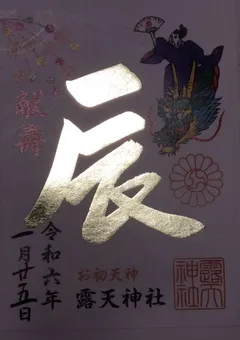 辰
お初天神
露天神社
令和六年
一月廿五日
露天
神社